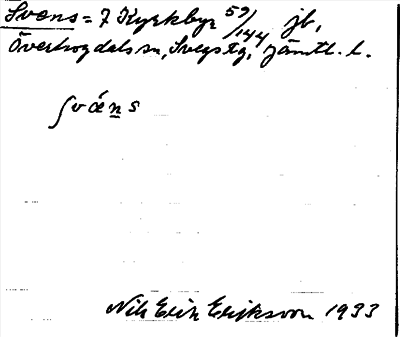 Svens = 7 Kyrkbyn 59/144 jb,
Överhogdals sn, Svegs tg, Jämtl. l.
Svǽn̲s
Nils Erik Eriksson 1933